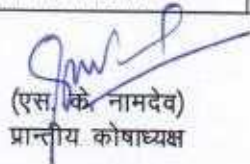 (एस. के. नामदेव)
प्रान्तीय कोषाध्यक्ष